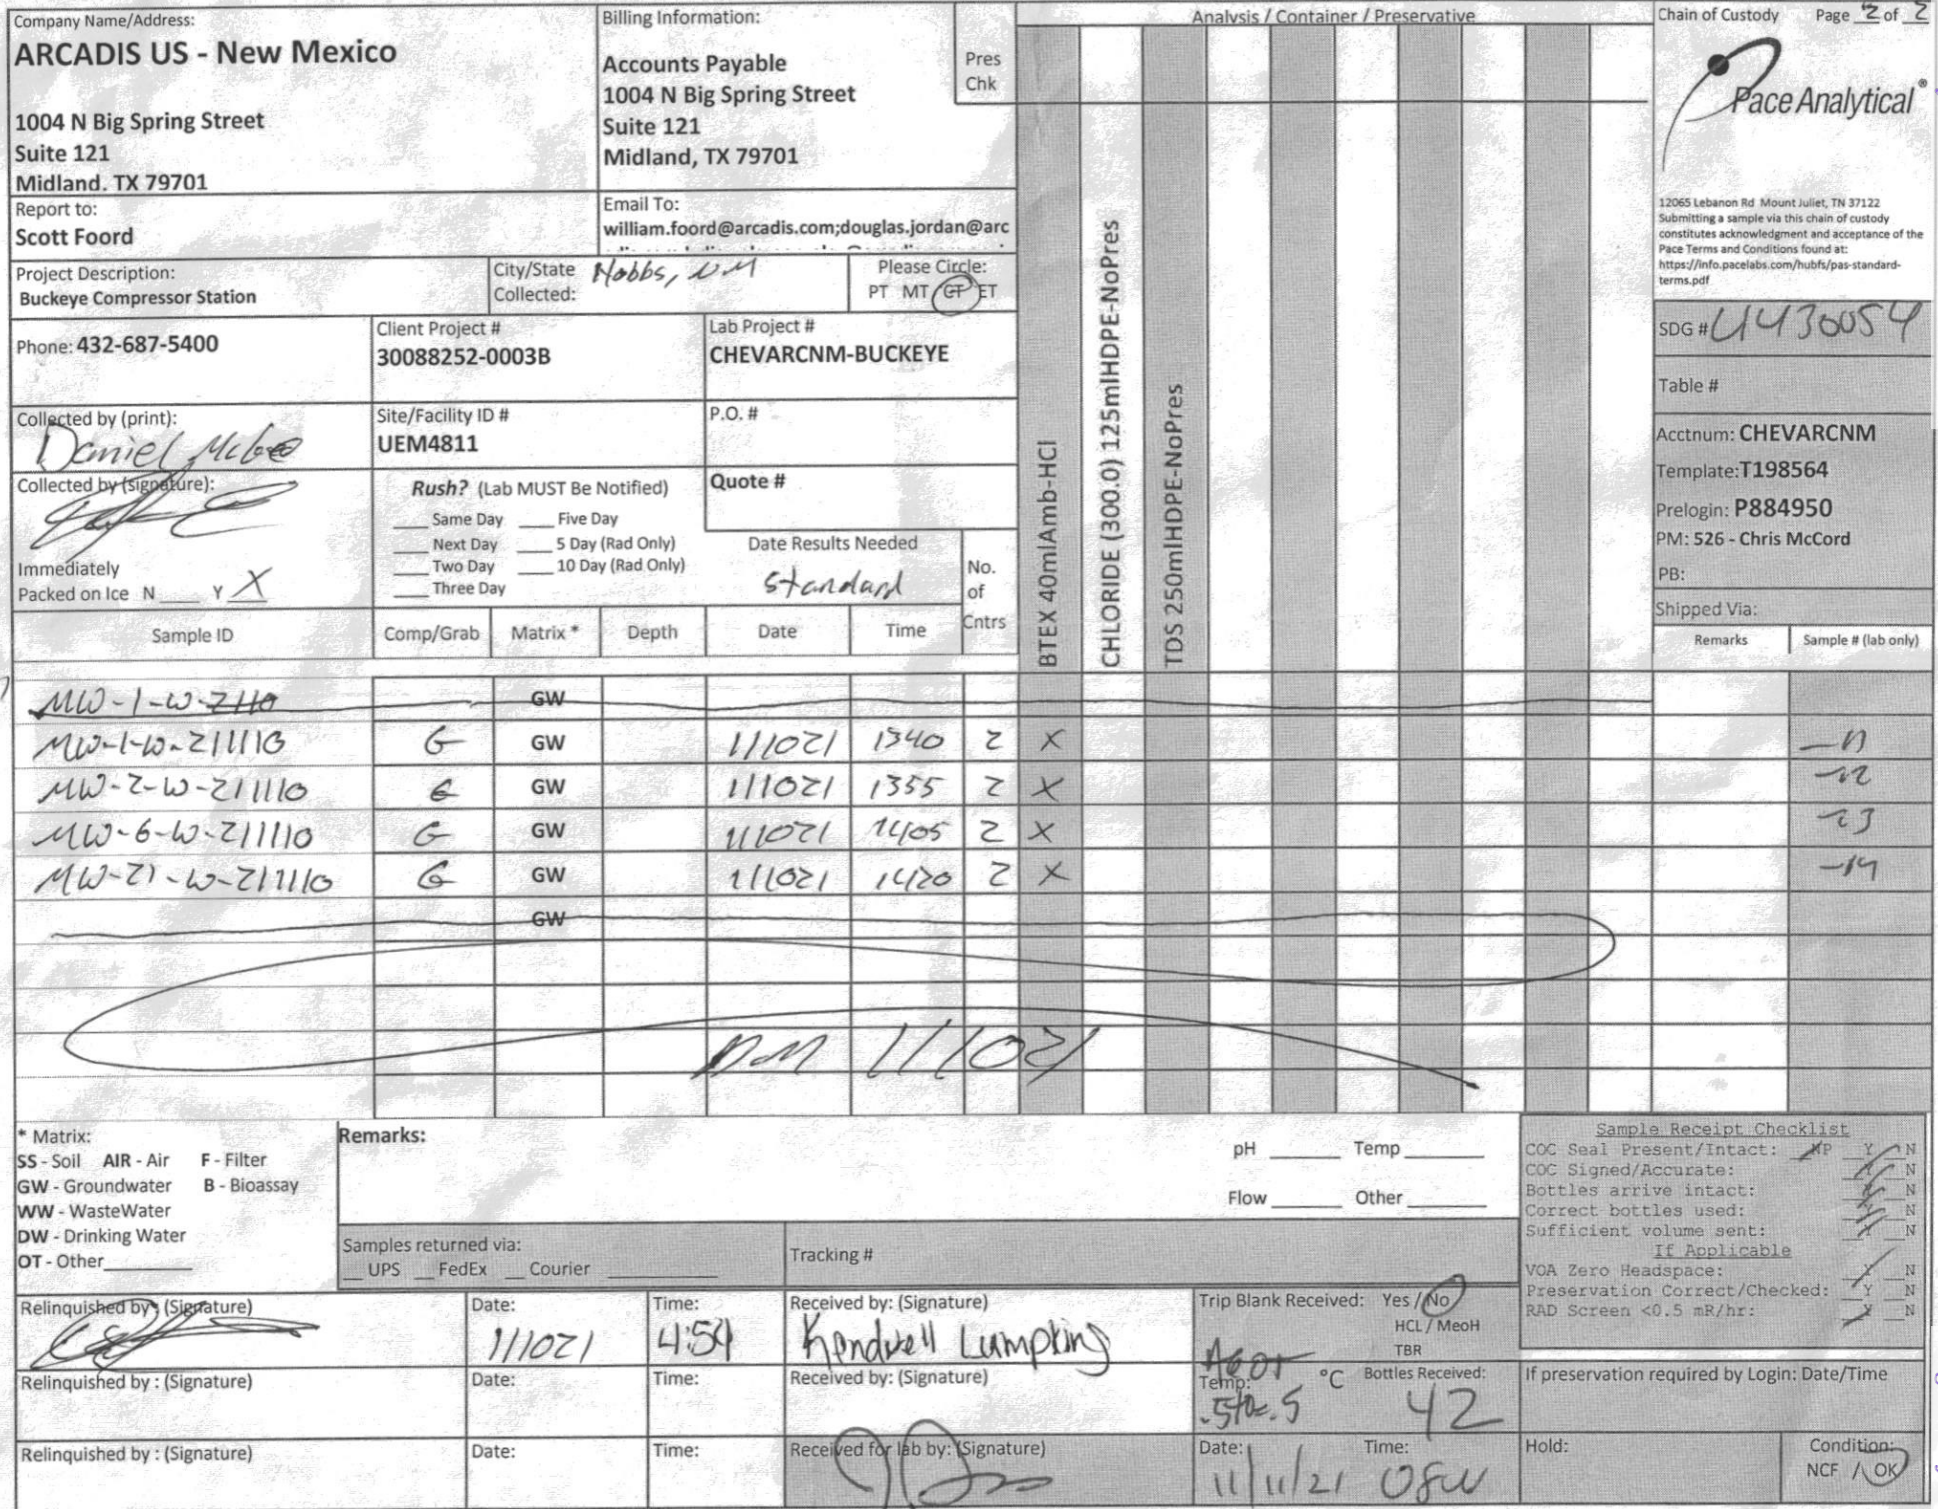 Company Name/Address:
ARCADIS US - New Mexico
1004 N Big Spring Street
Suite 121
Midland, TX 79701
Billing Information:
Accounts Payable
1004 N Big Spring Street
Suite 121
Midland, TX 79701
Pres
Chk
Analysis / Container / Preservative
Chain of Custody Page 2 of 2
Pace Analytical®
12065 Lebanon Rd Mount Juliet, TN 37122
Submitting a sample via this chain of custody
constitutes acknowledgment and acceptance of the
Pace Terms and Conditions found at:
https://info.pacelabs.com/hubfs/pas-standard-
terms.pdf
Report to:
Scott Foord
Email To:
william.foord@arcadis.com;douglas.jordan@arc
Project Description:
Buckeye Compressor Station
City/State
Collected: Hobbs, NM
Please Circle:
PT MT CT ET
SDG #
Phone: 432-687-5400
Client Project #
30088252-0003B
Lab Project #
CHEVARCNM-BUCKEYE
Table #
Collected by (print):
Daniel McGee
Site/Facility ID #
UEM4811
P.O. #
Acctnum: CHEVARCNM
Template:T198564
Prelogin: P884950
PM: 526 - Chris McCord
PB:
Shipped Via:
Collected by (signature):
Rush? (Lab MUST Be Notified)
Same Day Five Day
Next Day 5 Day (Rad Only)
Two Day 10 Day (Rad Only)
Three Day
Quote #
Date Results Needed
Standard
Immediately
Packed on Ice N Y X
No.
of
Cntrs
Sample ID Comp/Grab Matrix * Depth Date Time
BTEX 40mlAmb-HCl
CHLORIDE (300.0) 125mlHDPE-NoPres
TDS 250mlHDPE-NoPres
Remarks Sample # (lab only)
MW-1-W-2110 GW
MW-1-W-211110 G GW 111021 1340 2 X -11
MW-2-W-211110 G GW 111021 1355 2 X -12
MW-6-W-211110 G GW 111021 1405 2 X -13
MW-21-W-211110 G GW 111021 1420 2 X -14
GW
DM 111021
* Matrix:
SS - Soil AIR - Air F - Filter
GW - Groundwater B - Bioassay
WW - WasteWater
DW - Drinking Water
OT - Other
Remarks:
pH Temp
Flow Other
Samples returned via:
UPS FedEx Courier
Tracking #
Sample Receipt Checklist
COC Seal Present/Intact: NP Y N
COC Signed/Accurate: Y N
Bottles arrive intact: Y N
Correct bottles used: Y N
Sufficient volume sent: Y N
If Applicable
VOA Zero Headspace: Y N
Preservation Correct/Checked: Y N
RAD Screen <0.5 mR/hr: Y N
Relinquished by : (Signature)
Date:
111021
Time:
4:54
Received by: (Signature)
Kendrell Lumpking
Trip Blank Received: Yes / No
HCL / MeoH
TBR
Relinquished by : (Signature)
Date:
Time:
Received by: (Signature)
Temp: °C
Bottles Received:
42
If preservation required by Login: Date/Time
Relinquished by : (Signature)
Date:
Time:
Received for lab by: (Signature)
Date:
11/11/21
Time:
Hold:
Condition:
NCF / OK